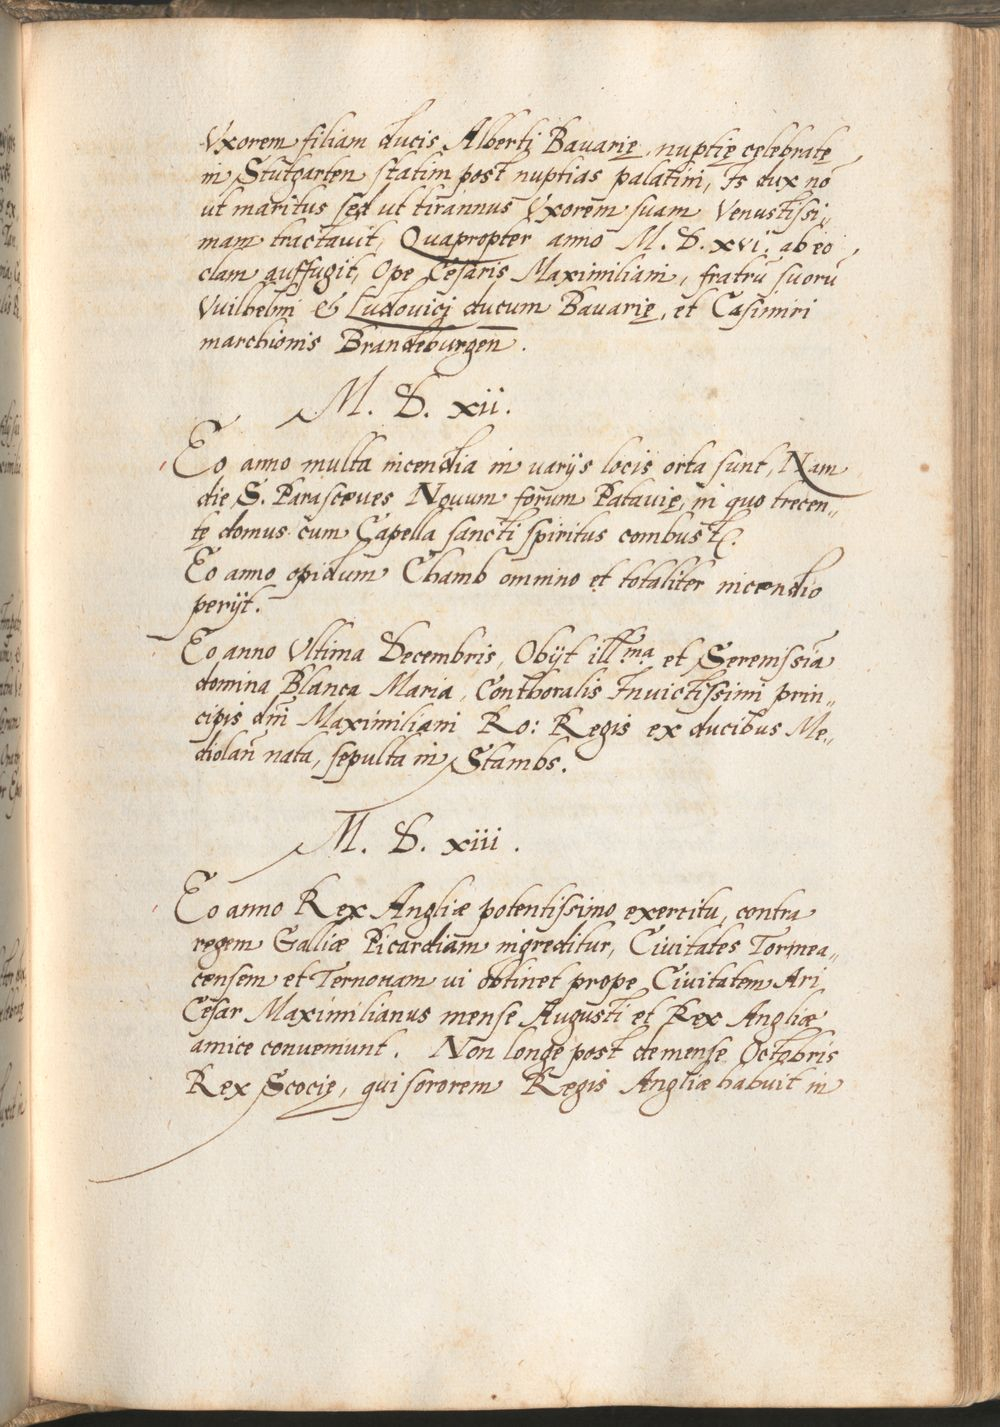 Vxorem filiam ducis Alberti Bauarię, nuptię celebratę
in Stutgarten statim post nuptias palatini, Is dux nō
ut maritus sed ut tirannus Vxorem suam Venustissi„
mam tractauit, Quapropter anno M. D. xvi. ab eo
clam auffugit, Ope Cesaris Maximiliani, fratrū suorū
Vuilhelmi & Ludouici ducum Bauarię, et Casimiri
marchionis Brandeburgen̄.
M. D. xii.
Eo anno multa incendia in varijs locis orta sunt, Nam
die S. Parasceues Nouum forum Patauię, in quo trecen„
tę domus cum Capella sancti spiritus combustę.
Eo anno opidum Chamb omnino et totaliter incendio
perijt.
Eo anno Vltima Decembris, Obijt ill.ma et Serenissīa
domina Blanca Maria, Conthoralis Inuictissimi prin„
cipis dn̄i Maximiliani Ro: Regis ex ducibus Me„
diolan̄ nata, sepulta in Stambs.
M. D. xiii.
Eo anno Rex Angliæ potentissimo exercitu, contra
regem Galliæ Picardiam ingreditur, Ciuitates Tornea„
censem et Ternouam ui obtinet prope Ciuitatem Ari
Cesar Maximilianus mense Augusti et Rex Angliæ
amice conueniunt. Non longe post de mense Octobris
Rex Scocię, qui sororem Regis Angliæ habuit in